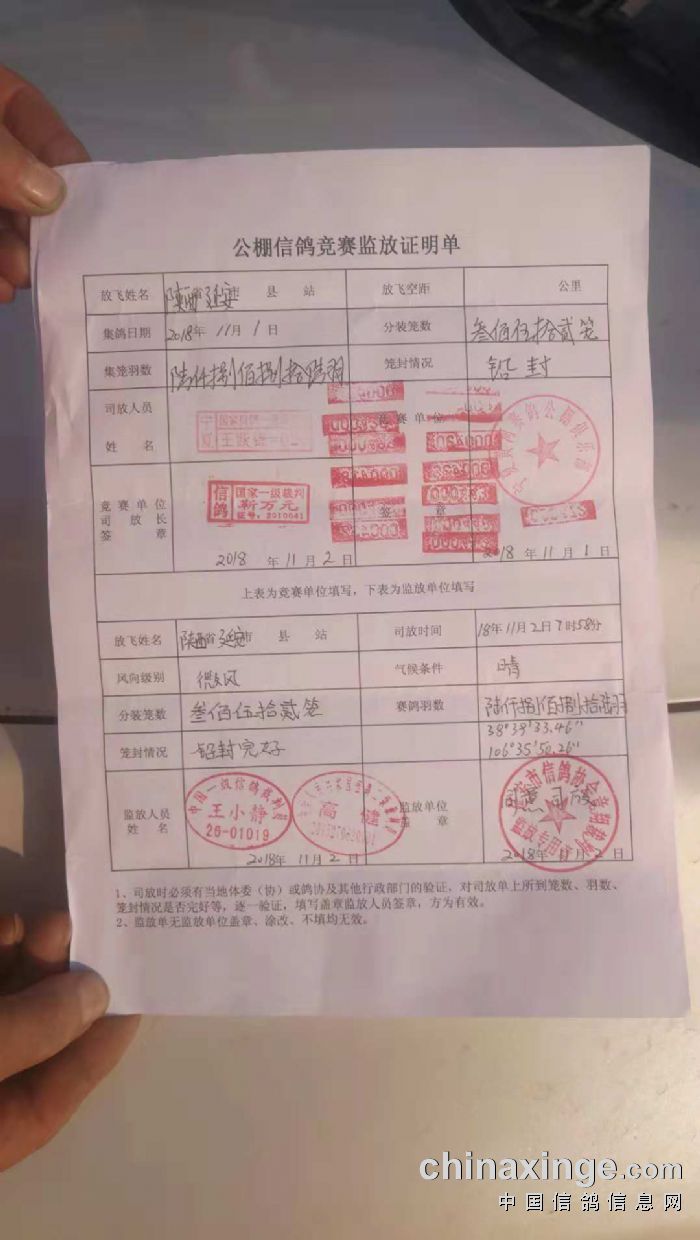 公棚信鸽竞赛监放证明单
放飞姓名 陕西省延安市 县 站 放飞空距 公里
集鸽日期 2018年 11月 1日 分装笼数 叁佰伍拾贰笼
集笼羽数 陆仟捌佰捌拾陆羽 笼封情况 铅封
司放人员
姓 名
竞赛单位
竞赛单位
司放长
签 章
信鸽 国家一级裁判
靳万元
证号:2010041
签 章
2018 年 11 月 2 日 2018 年 11 月 1 日
上表为竞赛单位填写,下表为监放单位填写
放飞姓名 陕西省延安市 县 站 司放时间 18年11月2日7时58分
风向级别 微风 气候条件 晴
分装笼数 叁佰伍拾贰笼 赛鸽羽数 陆仟捌佰捌拾陆羽
笼封情况 铅封完好 38°39'33.46"
106°35'50.26"
监放人员
姓 名
中国一级信鸽裁判员
王小静
26-01019
高健
监放单位
盖 章
市信鸽协会竞翔裁判
监放专用章
2018年 11月 2日 2018年 11月 2日
1、司放时必须有当地体委(协)或鸽协及其他行政部门的验证,对司放单上所到笼数、羽数、
笼封情况是否完好等,逐一验证,填写盖章监放人员签章,方为有效。
2、监放单无监放单位盖章、涂改、不填均无效。
chinaxinge.com
中国信鸽信息网